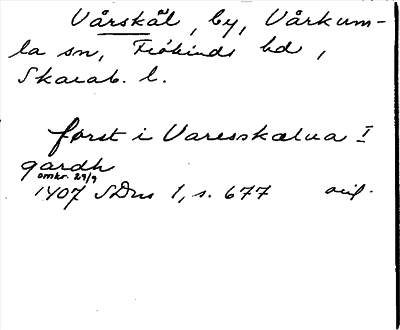 Vårskål, by, Vårkum-
la sn, Frökinds hd,
Skarab. l.
først i Varesskalua I
gardh
omkr. 29/9
1407 SDns 1, s. 677 orig.